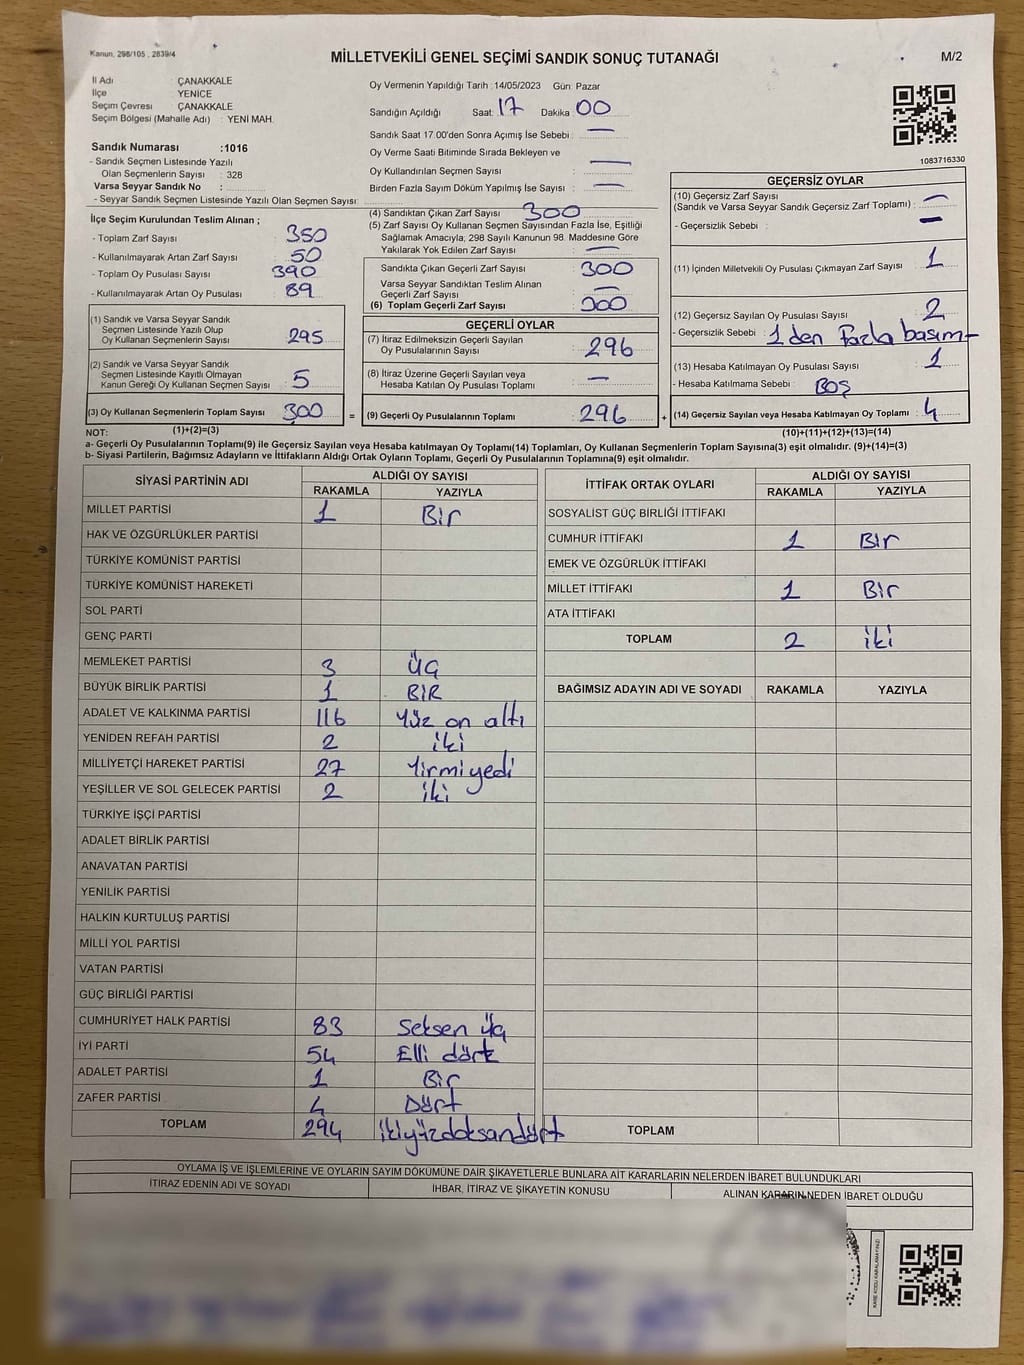 Kanun, 298/105 , 2839/4
MİLLETVEKİLİ GENEL SEÇİMİ SANDIK SONUÇ TUTANAĞI
M/2
İl Adı ÇANAKKALE
İlçe YENİCE
Seçim Çevresi ÇANAKKALE
Seçim Bölgesi (Mahalle Adı) : YENİ MAH.
Oy Vermenin Yapıldığı Tarih : 14/05/2023 Gün: Pazar
Sandığın Açıldığı Saat: 17 Dakika : 00
Sandık Saat 17.00'den Sonra Açımış İse Sebebi : —
Oy Verme Saati Bitiminde Sırada Bekleyen ve
Oy Kullandırılan Seçmen Sayısı : —
Birden Fazla Sayım Döküm Yapılmış İse Sayısı : —
1083716330
Sandık Numarası :1016
- Sandık Seçmen Listesinde Yazılı
Olan Seçmenlerin Sayısı : 328
Varsa Seyyar Sandık No :
- Seyyar Sandık Seçmen Listesinde Yazılı Olan Seçmen Sayısı:
İlçe Seçim Kurulundan Teslim Alınan ;
- Toplam Zarf Sayısı : 350
- Kullanılmayarak Artan Zarf Sayısı : 50
- Toplam Oy Pusulası Sayısı : 390
- Kullanılmayarak Artan Oy Pusulası : 89
(1) Sandık ve Varsa Seyyar Sandık
Seçmen Listesinde Yazılı Olup
Oy Kullanan Seçmenlerin Sayısı : 295
(2) Sandık ve Varsa Seyyar Sandık
Seçmen Listesinde Kayıtlı Olmayan
Kanun Gereği Oy Kullanan Seçmen Sayısı : 5
(3) Oy Kullanan Seçmenlerin Toplam Sayısı : 300 =
(1)+(2)=(3)
(4) Sandıktan Çıkan Zarf Sayısı : 300
(5) Zarf Sayısı Oy Kullanan Seçmen Sayısından Fazla İse, Eşitliği
Sağlamak Amacıyla, 298 Sayılı Kanunun 98. Maddesine Göre
Yakılarak Yok Edilen Zarf Sayısı : —
Sandıkta Çıkan Geçerli Zarf Sayısı : 300
Varsa Seyyar Sandıktan Teslim Alınan
Geçerli Zarf Sayısı : —
(6) Toplam Geçerli Zarf Sayısı : 300
GEÇERLİ OYLAR
(7) İtiraz Edilmeksizin Geçerli Sayılan
Oy Pusulalarının Sayısı : 296
(8) İtiraz Üzerine Geçerli Sayılan veya
Hesaba Katılan Oy Pusulası Toplamı : —
(9) Geçerli Oy Pusulalarının Toplamı : 296 +
GEÇERSİZ OYLAR
(10) Geçersiz Zarf Sayısı
(Sandık ve Varsa Seyyar Sandık Geçersiz Zarf Toplamı) : —
- Geçersizlik Sebebi : —
(11) İçinden Milletvekili Oy Pusulası Çıkmayan Zarf Sayısı : 1
(12) Geçersiz Sayılan Oy Pusulası Sayısı : 2
- Geçersizlik Sebebi : 1 den fazla basım-
(13) Hesaba Katılmayan Oy Pusulası Sayısı : 1
- Hesaba Katılmama Sebebi : BOŞ
(14) Geçersiz Sayılan veya Hesaba Katılmayan Oy Toplamı : 4
(10)+(11)+(12)+(13)=(14)
NOT:
a- Geçerli Oy Pusulalarının Toplamı(9) ile Geçersiz Sayılan veya Hesaba katılmayan Oy Toplamı(14) Toplamları, Oy Kullanan Seçmenlerin Toplam Sayısına(3) eşit olmalıdır. (9)+(14)=(3)
b- Siyasi Partilerin, Bağımsız Adayların ve İttifakların Aldığı Oyların Toplamı, Geçerli Oy Pusulalarının Toplamına(9) eşit olmalıdır.
SİYASİ PARTİNİN ADI ALDIĞI OY SAYISI
RAKAMLA YAZIYLA
MİLLET PARTİSİ 1 Bir
HAK VE ÖZGÜRLÜKLER PARTİSİ
TÜRKİYE KOMÜNİST PARTİSİ
TÜRKİYE KOMÜNİST HAREKETİ
SOL PARTİ
GENÇ PARTİ
MEMLEKET PARTİSİ 3 Üç
BÜYÜK BİRLİK PARTİSİ 1 BİR
ADALET VE KALKINMA PARTİSİ 116 Yüz on altı
YENİDEN REFAH PARTİSİ 2 iki
MİLLİYETÇİ HAREKET PARTİSİ 27 Yirmi yedi
YEŞİLLER VE SOL GELECEK PARTİSİ 2 iki
TÜRKİYE İŞÇİ PARTİSİ
ADALET BİRLİK PARTİSİ
ANAVATAN PARTİSİ
YENİLİK PARTİSİ
HALKIN KURTULUŞ PARTİSİ
MİLLİ YOL PARTİSİ
VATAN PARTİSİ
GÜÇ BİRLİĞİ PARTİSİ
CUMHURİYET HALK PARTİSİ 83 Seksen üç
İYİ PARTİ 54 Elli dört
ADALET PARTİSİ 1 Bir
ZAFER PARTİSİ 4 Dört
TOPLAM 294 ikiyüzdoksandört
İTTİFAK ORTAK OYLARI ALDIĞI OY SAYISI
RAKAMLA YAZIYLA
SOSYALİST GÜÇ BİRLİĞİ İTTİFAKI
CUMHUR İTTİFAKI 1 Bir
EMEK VE ÖZGÜRLÜK İTTİFAKI
MİLLET İTTİFAKI 1 Bir
ATA İTTİFAKI
TOPLAM 2 iki
BAĞIMSIZ ADAYIN ADI VE SOYADI RAKAMLA YAZIYLA
TOPLAM
OYLAMA İŞ VE İŞLEMLERİNE VE OYLARIN SAYIM DÖKÜMÜNE DAİR ŞİKAYETLERLE BUNLARA AİT KARARLARIN NELERDEN İBARET BULUNDUKLARI
İTİRAZ EDENİN ADI VE SOYADI İHBAR, İTİRAZ VE ŞİKAYETİN KONUSU ALINAN KARARIN NEDEN İBARET OLDUĞU
KARE KODU KARALAMAYINIZ!